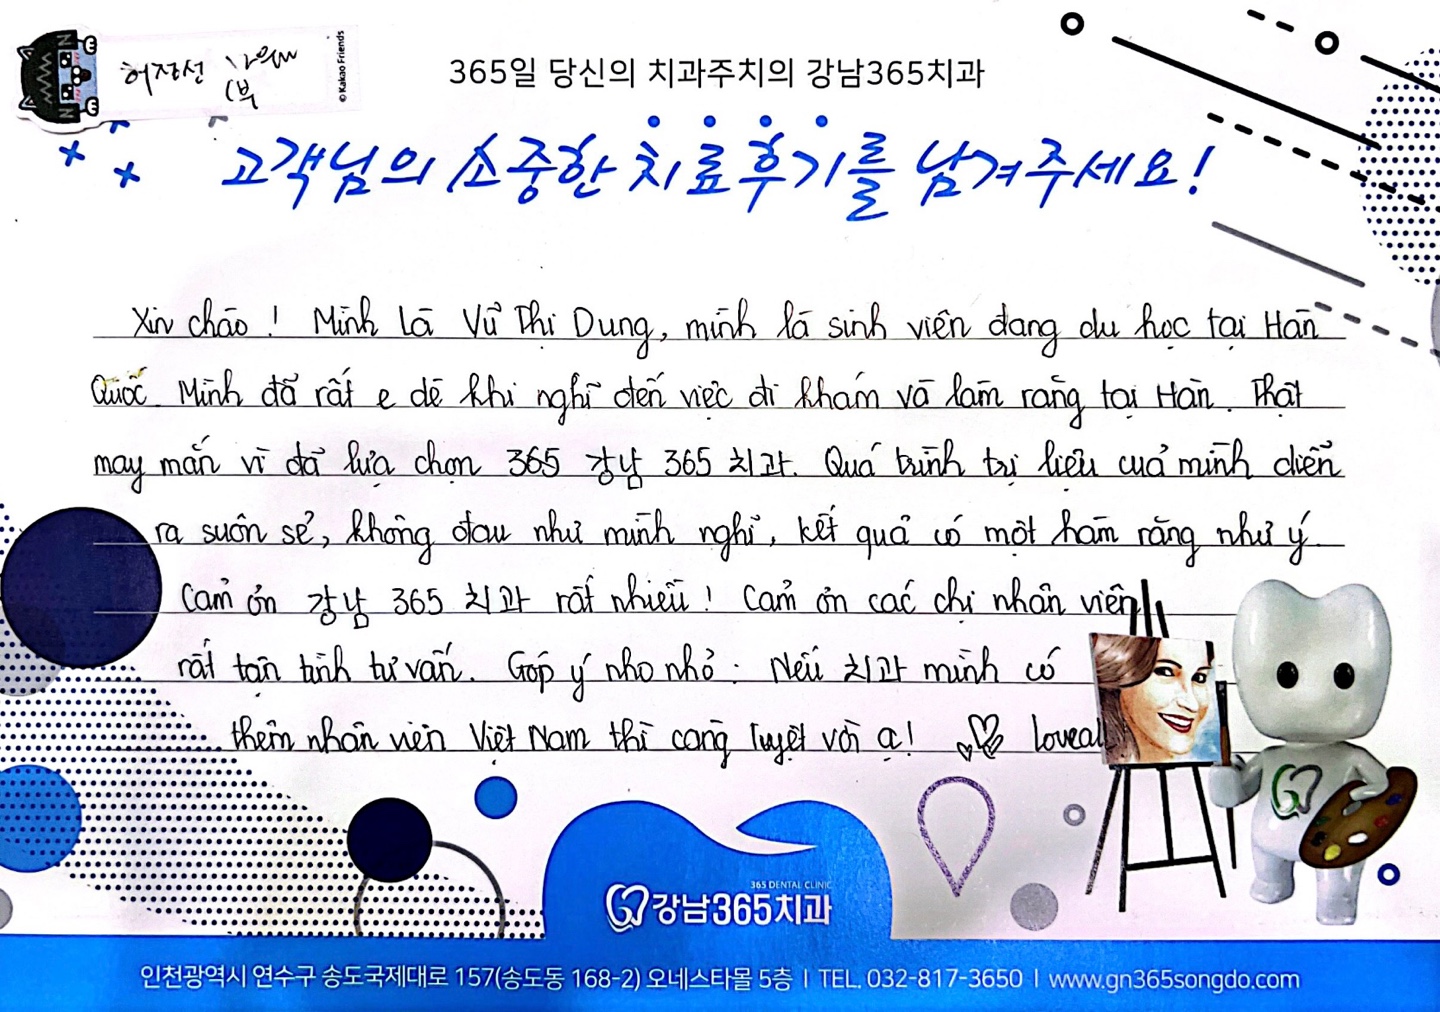 허장선
© Kakao Friends
365일 당신의 치과주치의 강남365치과
고객님의 소중한 치료후기를 남겨주세요!
Xin chào! Mình là Vũ Thị Dung, mình là sinh viên đang du học tại Hàn
Quốc. Mình đã rất e dè khi nghĩ đến việc đi khám và làm răng tại Hàn. Thật
may mắn vì đã lựa chọn 365 강남 365 치과. Quá trình trị liệu của mình diễn
ra suôn sẻ, không đau như mình nghĩ, kết quả có một hàm răng như ý.
Cảm ơn 강남 365 치과 rất nhiều! Cảm ơn các chị nhân viên
rất tận tình tư vấn. Góp ý nho nhỏ: Nếu 치과 mình có
thêm nhân viên Việt Nam thì càng tuyệt vời ạ! loveal
365 DENTAL CLINIC
강남365치과
인천광역시 연수구 송도국제대로 157(송도동 168-2) 오네스타몰 5층 | TEL. 032-817-3650 | www.gn365songdo.com